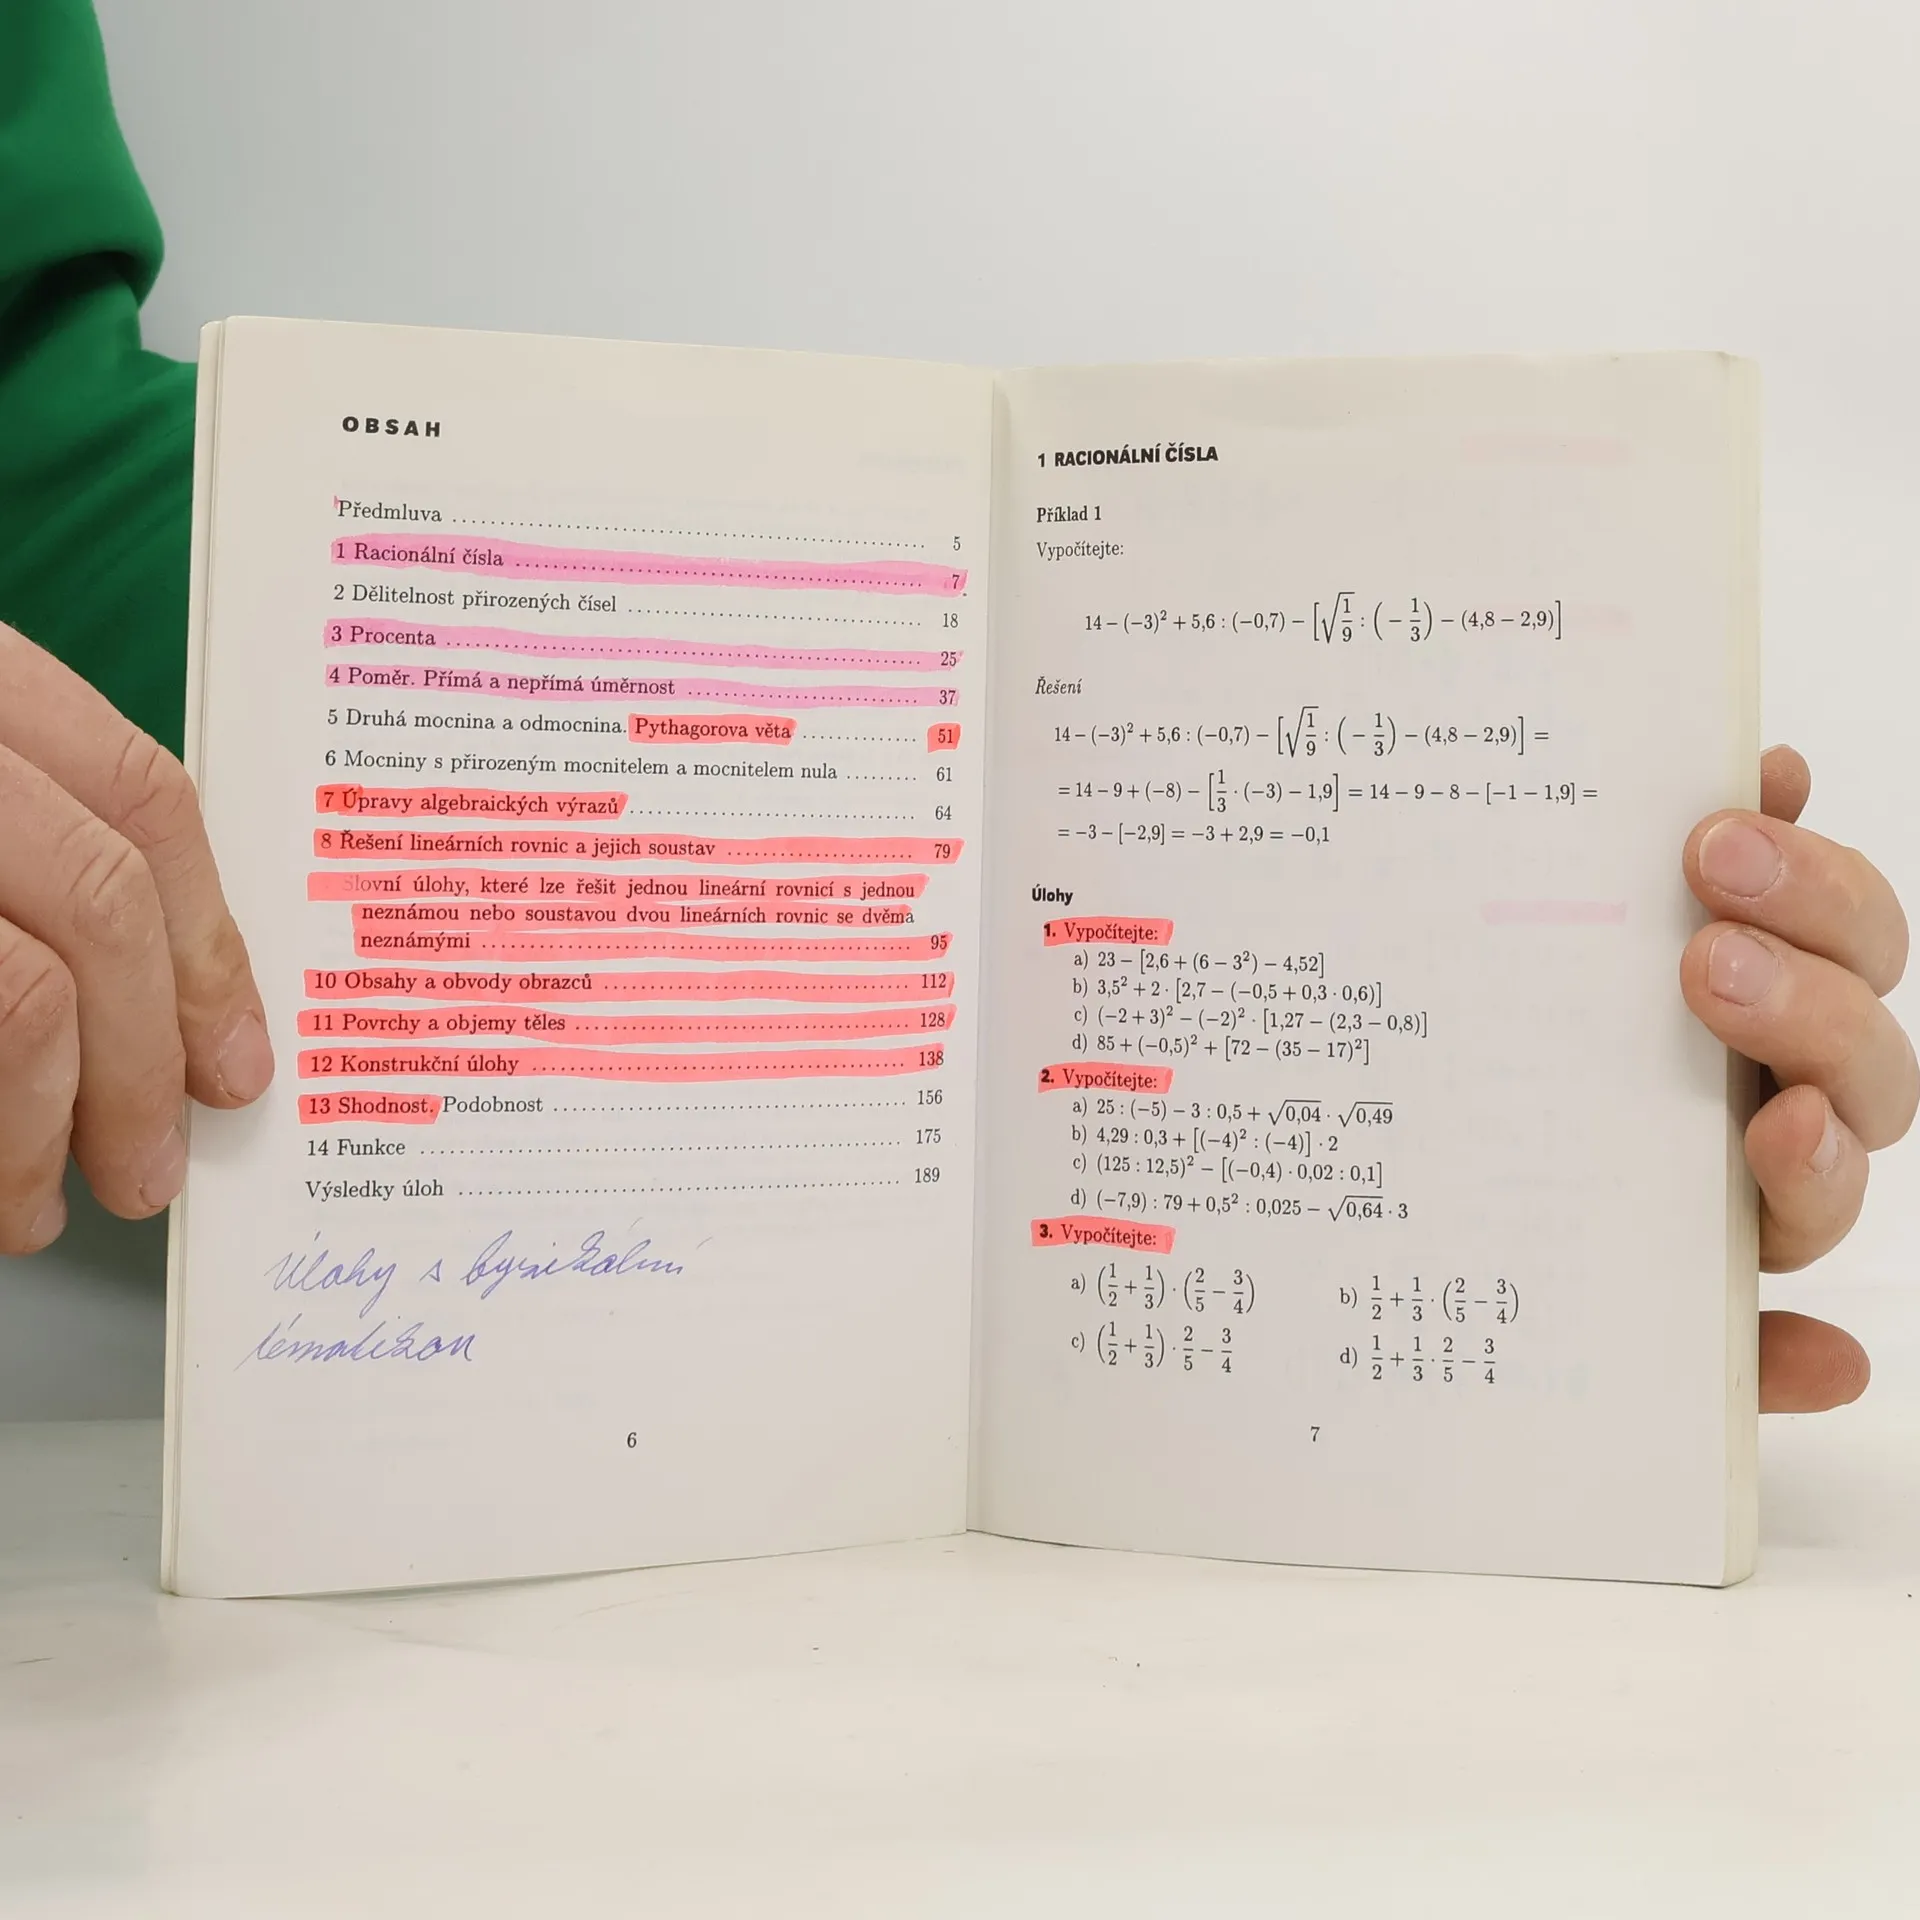 OBSAH
Předmluva ........ 5
1 Racionální čísla ........ 7
2 Dělitelnost přirozených čísel ........ 18
3 Procenta ........ 25
4 Poměr. Přímá a nepřímá úměrnost ........ 37
5 Druhá mocnina a odmocnina. Pythagorova věta ........ 51
6 Mocniny s přirozeným mocnitelem a mocnitelem nula ........ 61
7 Úpravy algebraických výrazů ........ 64
8 Řešení lineárních rovnic a jejich soustav ........ 79
Slovní úlohy, které lze řešit jednou lineární rovnicí s jednou
neznámou nebo soustavou dvou lineárních rovnic se dvěma
neznámými ........ 95
10 Obsahy a obvody obrazců ........ 112
11 Povrchy a objemy těles ........ 128
12 Konstrukční úlohy ........ 138
13 Shodnost. Podobnost ........ 156
14 Funkce ........ 175
Výsledky úloh ........ 189
Úlohy s fyzikální
tématikou
6
1 RACIONÁLNÍ ČÍSLA
Příklad 1
Vypočítejte:
14 − (−3)² + 5,6 : (−0,7) − [√(1/9) : (− 1/3) − (4,8 − 2,9)]
Řešení
14 − (−3)² + 5,6 : (−0,7) − [√(1/9) : (− 1/3) − (4,8 − 2,9)] =
= 14 − 9 + (−8) − [1/3 · (−3) − 1,9] = 14 − 9 − 8 − [−1 − 1,9] =
= −3 − [−2,9] = −3 + 2,9 = −0,1
Úlohy
1. Vypočítejte:
a) 23 − [2,6 + (6 − 3²) − 4,52]
b) 3,5² + 2 · [2,7 − (−0,5 + 0,3 · 0,6)]
c) (−2 + 3)² − (−2)² · [1,27 − (2,3 − 0,8)]
d) 85 + (−0,5)² + [72 − (35 − 17)²]
2. Vypočítejte:
a) 25 : (−5) − 3 : 0,5 + √0,04 · √0,49
b) 4,29 : 0,3 + [(−4)² : (−4)] · 2
c) (125 : 12,5)² − [(−0,4) · 0,02 : 0,1]
d) (−7,9) : 79 + 0,5² : 0,025 − √0,64 · 3
3. Vypočítejte:
a) (1/2 + 1/3) · (2/5 − 3/4) b) 1/2 + 1/3 · (2/5 − 3/4)
c) (1/2 + 1/3) · 2/5 − 3/4 d) 1/2 + 1/3 · 2/5 − 3/4
7